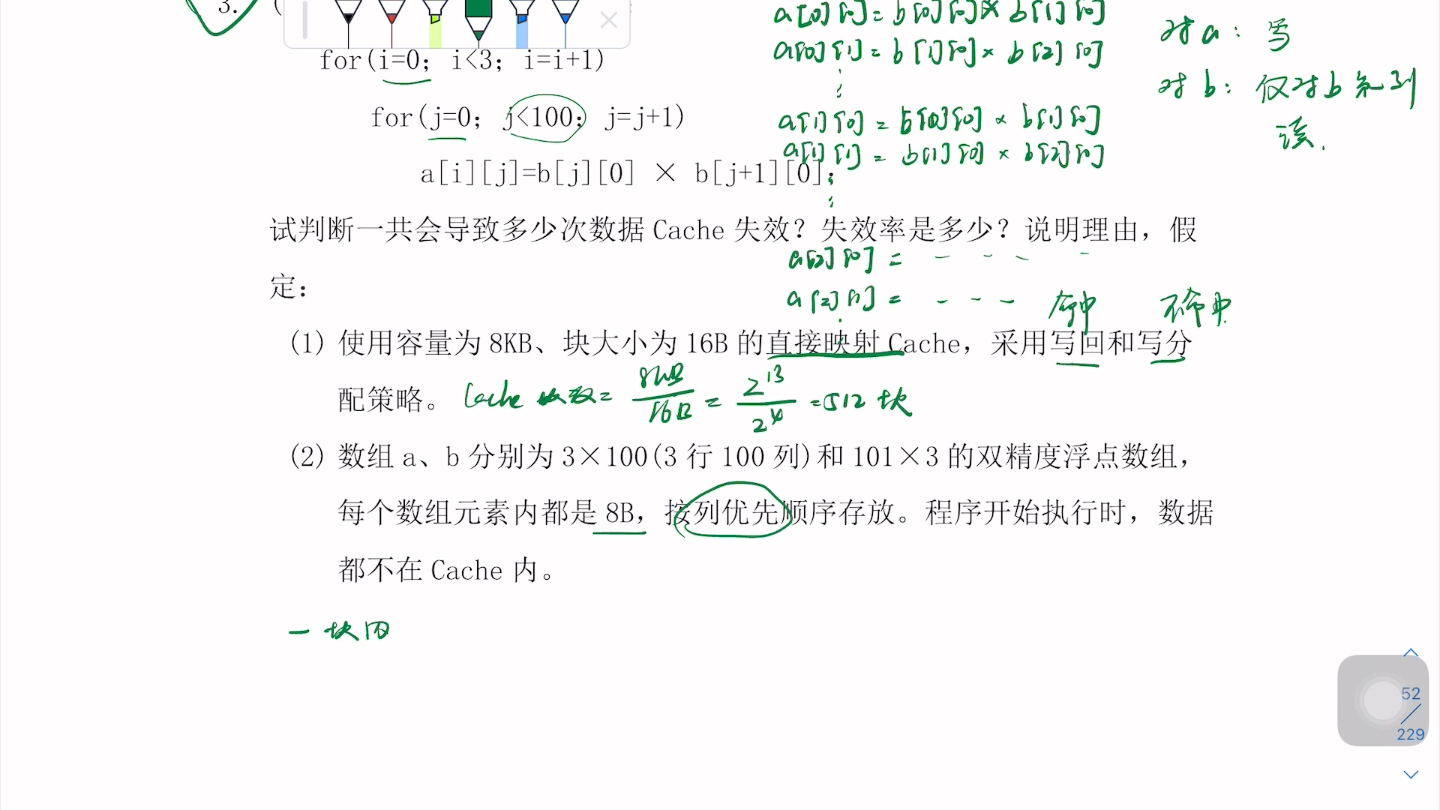 3. (
for(i=0; i<3; i=i+1)
for(j=0; j<100; j=j+1)
a[i][j]=b[j][0] × b[j+1][0];
a[0][0]=b[0][0]×b[1][0]
a[0][1]=b[1][0]×b[2][0]
a[1][0]=b[0][0]×b[1][0]
a[1][1]=b[1][0]×b[2][0]
对a: 写
对b: 仅对b第0列
读.
试判断一共会导致多少次数据 Cache 失效？失效率是多少？说明理由，假
定：
a[2][0]= - - - -
a[2][1]= - - -
命中 不命中
(1) 使用容量为 8KB、块大小为 16B 的直接映射 Cache，采用写回和写分
配策略。 Cache 块数= 8KB/16B = 2^13/2^4 =512 块
(2) 数组 a、b 分别为 3×100(3 行 100 列)和 101×3 的双精度浮点数组，
每个数组元素内都是 8B，按列优先顺序存放。程序开始执行时，数据
都不在 Cache 内。
一块内
52
229